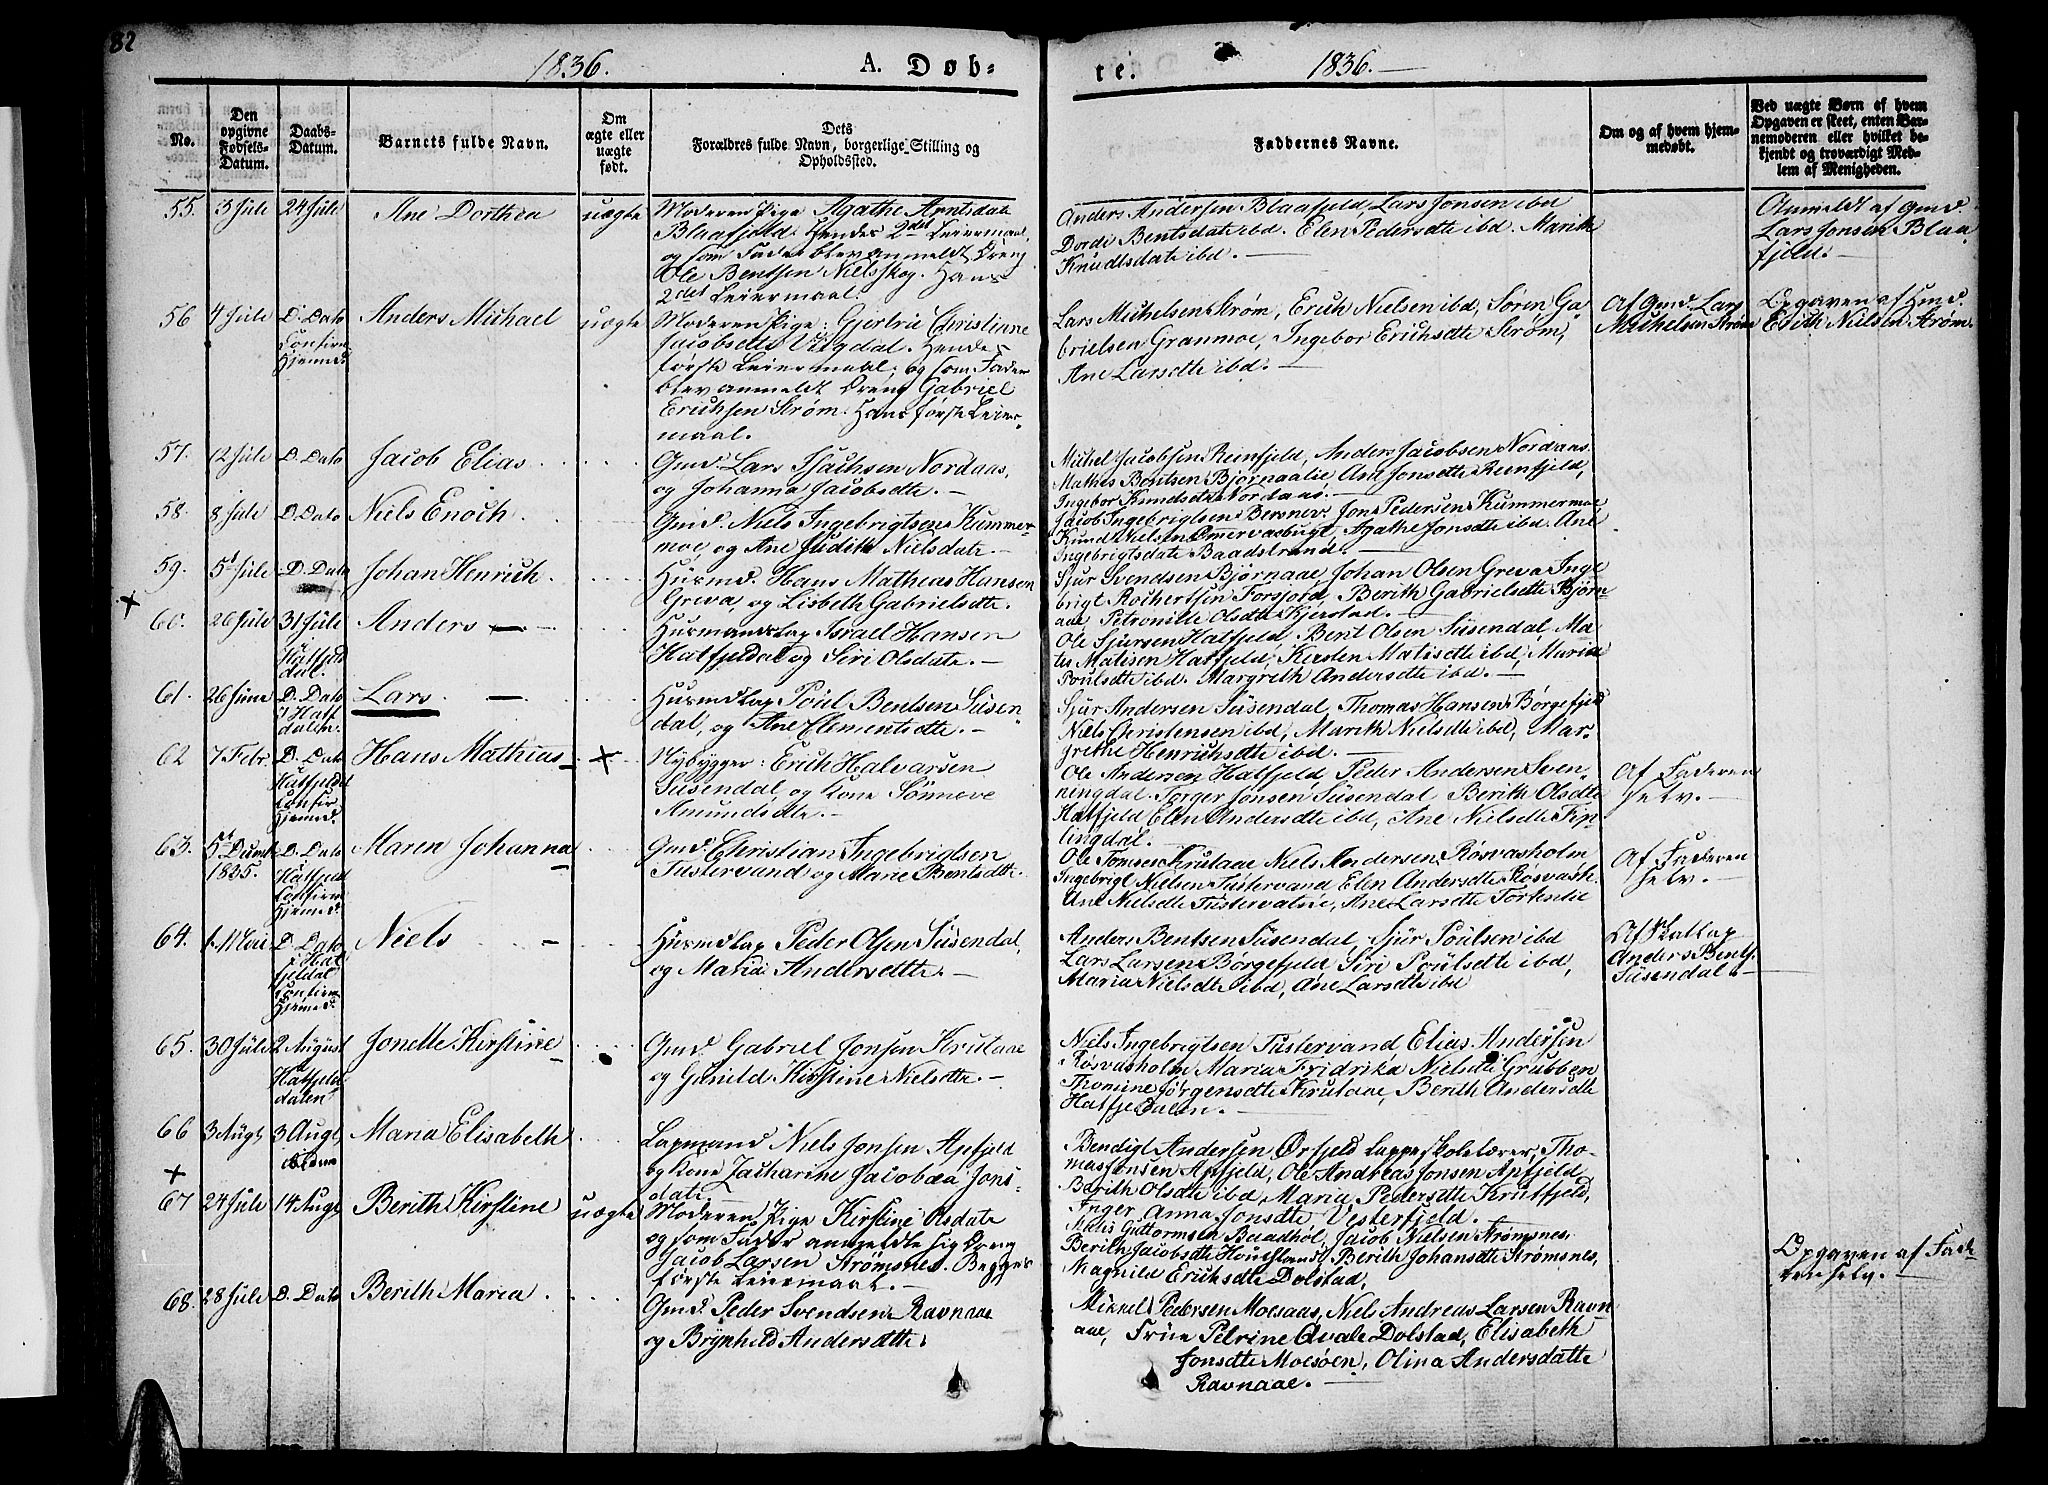 82
1836. A. Døb- te. 1836.
No.
Den opgivne Fødsels-Datum.
Daabs-Datum.
Barnets fulde Navn.
Om ægte eller uægte født.
Dets Forældres fulde Navn, borgerlige Stilling og Opholdssted.
Faddernes Navne.
Om og af hvem hjem-medøbt.
Ved uægte Børn af hvem Opgaven er skeet, enten Bar-nemoderen eller hvilket be-kjendt og troværdigt Med-lem af Menigheden.
55. 3 Jule 24 Jule Ane Dorthea uægte
Moderen Pige Agathe Arntsdate
Blaafjeld. Hendes 2det Leiermaal,
og som Fader blev anmeldt Dreng
Ole Bentsen Nielsskog. Hans
2det Leiermaal.
Anders Andersen Blaafjeld, Lars Jonsen ibd
Dordi Bentsdate ibd. Elen Pedersdte ibd. Marith
Knudtsdate ibd.
Anmeldt af Gmd.
Lars Jonsen Blaa
fjeld.
56 4 Jule D. Dato
Confirm
Hjemed.
Anders Michael uægte
Moderen Pige: Gjertru Christinne
Jacobsdte Vegdal. Hendes
første Leiermaal, og som Fader
blev anmeldt Dreng Gabriel
Erichsen Strøm. Hans første Leier-
maal.
Lars Michelsen Strøm, Erich Nielsen ibd, Søren Ga
brielsen Granmoe, Ingebor Erichsdte Strøm,
Ane Larsdte ibd.
Af Gmd. Lars
Michelsen Strøm
Opgaven af Gmd.
Erich Nielsen Strøm.
57. 12 Jule D. Dato Jacob Elias
Gmd. Lars Isachsen Nordaas,
og Johanna Jacobsdte.
Michel Jacobsen Reinfjeld, Anders Jacobsen Nordaas
Mathis Bentsen Bjørnaalie, Ane Jonsdte Reinfjeld,
Ingebor Knudsdte Nordaas.
58. 8 Jule D. Dato Niels Enoch
Gmd. Niels Ingebrigtsen Kummer-
moe, og Ane Judith Nielsdate.
Jacob Ingebrigtsen Bersnev. Jon Pedersen Kummermoe
Knud Nielsen Ømmervasbugt, Agathe Jonsdte ibd. Ane
Ingebrigtsdate Baadstrand.
59. 5t Jule D. Dato Johan Henrich
Husmd. Hans Mathias Hansen
Greva, og Lisbeth Gabrielsdte.
Sjur Svendsen Bjørnaae, Johan Olsen Greva Inge
brigt Roihertsen Forsjord, Berith Gabrielsdte Bjørn-
aae, Petronille Olsdte Kjerstad.
60. 26 Jule 31 Jule
i Hatfjeld
dal.
Anders
Husmandslap Israel Hansen
Hatfjeldal og Siri Olsdate.
Ole Sjursen Hatfjeld, Bent Olsen Susendal, Ma-
tis Matisen Hatfjeld, Kirsten Matisdte ibd, Maria
Poulsdte ibd. Margreth Andersdte ibd.
61. 26 June D. Dato
i Hatf
dalen.
Lars
Husmdlap Poul Bentsen Susen
dal, og Ane Clementsdte.
Sjur Andersen Susendal, Thomas Hansen Børgefjeld
Niels Christensen ibd, Marith Nielsdte ibd, Mar-
grethe Henrichsdte ibd.
62 7 Febr. D. Dato
Hatfjeldd
Confir
Hjemed.
Hans Mathias
Nybygger: Erich Halvarsen
Susendal, og Kone Sønneve
Amundsdte.
Ole Andersen Hatfjeld, Peder Andersen Sven-
ningdal. Torger Jonsen Susendal Berith Olsdte
Hatfjeld Elen Andersdte ibd, Ane Nielsdte Fip-
lingdal.
Af Faderen
selv.
63. 5t Decemb
1835.
D. Dato
Hatfjeld
Confirm
Hjemed.
Maren Johanna
Gmd. Christian Ingebrigtsen
Tustervand og Marie Bentsdte.
Ole Tomsen Krutaae Niels Andersen Røsvasholm
Ingebrigt Nielsen Tustervand Elen Andersdte Røsvash.
Ane Nielsdte Tustervatne, Ane Larsdte Tortenlie
Af Faderen
selv.
64. 1 Mai D. Dato
i Hat
fjeldal
Confirm
Hjemed.
Niels
Husmdlap Peder Olsen Susendal,
og Maria Andersdte.
Anders Bentsen Susendal, Sjur Poulsen ibd
Lars Larsen Børgefjeld Siri Poulsdte ibd,
Maria Nielsdte ibd, Ane Larsdte ibd
Af Skatlap
Anders Bents.
Susendal
65. 30 Jule 2 August
Hatfjeld
dalen
Jonette Kirstine
Gmd. Gabriel Jonsen Krutaae
og Gunild Kirstine Nielsdte.
Niels Ingebrigtsen Tustervand Elias Andersen
Røsvasholm Maria Fridrika Nielsdte Grubben
Thomine Jørgensdte Krutaae, Berith Andersdte
Hatfjeldalen.
66 3 Augt, 3 Augt, Maria Elisabeth
Lapmand Niels Jonsen Apfjeld
og Kone Zacharine Jacobæa Jons-
date.
Bendigt Andersen Ørfjeld Lappeskolelærer, Tho-
mas Jonsen Apfjeld, Ole Andreas Jonsen Apfjeld
Barith Olsdte ibd, Maria Pedersdte Krutfjeld,
Inger Anna Jonsdte, Vesterfjeld.
67 24 Jule 14 Augt Berith Kirstine uægte
Moderen Pige Kirstine Olsdate
og som Fader anmeldte sig Dreng
Jacob Larsen Strømsnes. Begges
første Leiermaal.
Guttormsen Baadhol, Jacob Nielsen Strømsnes,
Berith Jacobsdte, Berith Johansdte Strømsnes,
Magnild Erichsdte Dolstad.
Opgaven af Fade-
ren selv.
68. 28 Jule D. Dato Berith Maria
Gmd. Peder Svendsen Ravnaae
og Brynhild Andersdatte.
Mikkel Pedersen Moesaas, Niels Andreas Larsen Ravn
aae, Frue Petrine Qvale Dolstad, Elisabeth
Jonsdte Moesøen, Olina Andersdatte
Ravnaae.